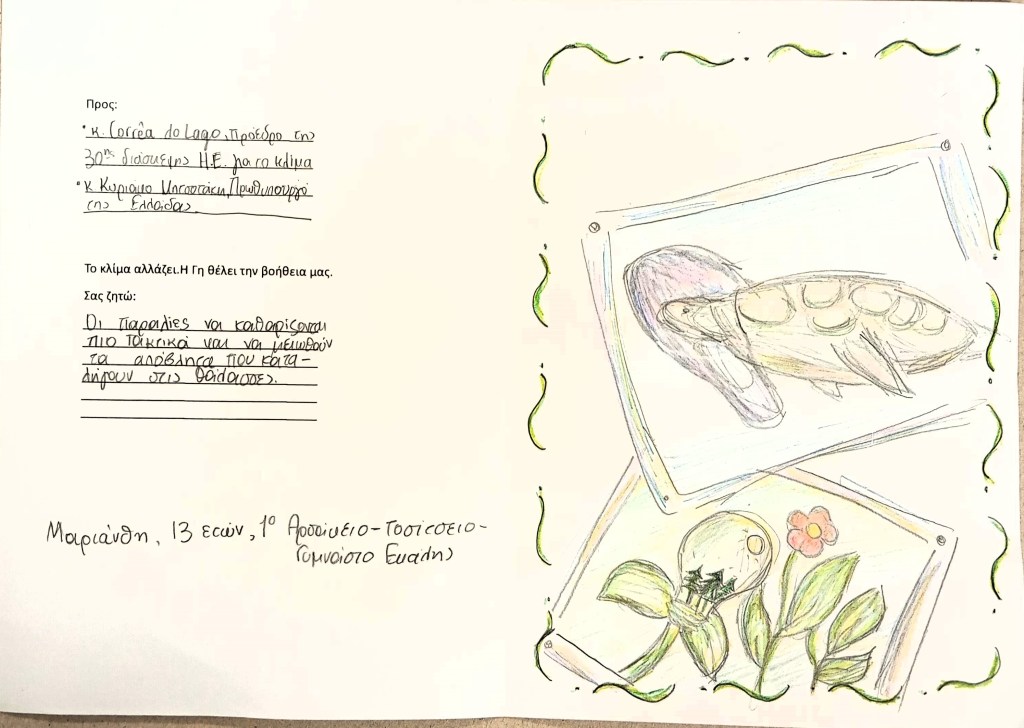 Προς:
• κ. Corrêa do Lago, Πρόεδρο της
30ης διάσκεψης Η.Ε. για το κλίμα
• κ Κυριάκο Μητσοτάκη, Πρωθυπουργό
της Ελλάδας
Το κλίμα αλλάζει.Η Γη θέλει την βοήθεια μας.
Σας ζητώ:
Οι παραλίες να καθαρίζονται
πιο τακτικά και να μειωθούν
τα απόβλητα που κατα-
λήγουν στις θάλασσες.
Μαριάνθη, 13 ετών, 1ο Αρσάκειο-Τοσίτσειο-
Γυμνάσιο Εκάλης